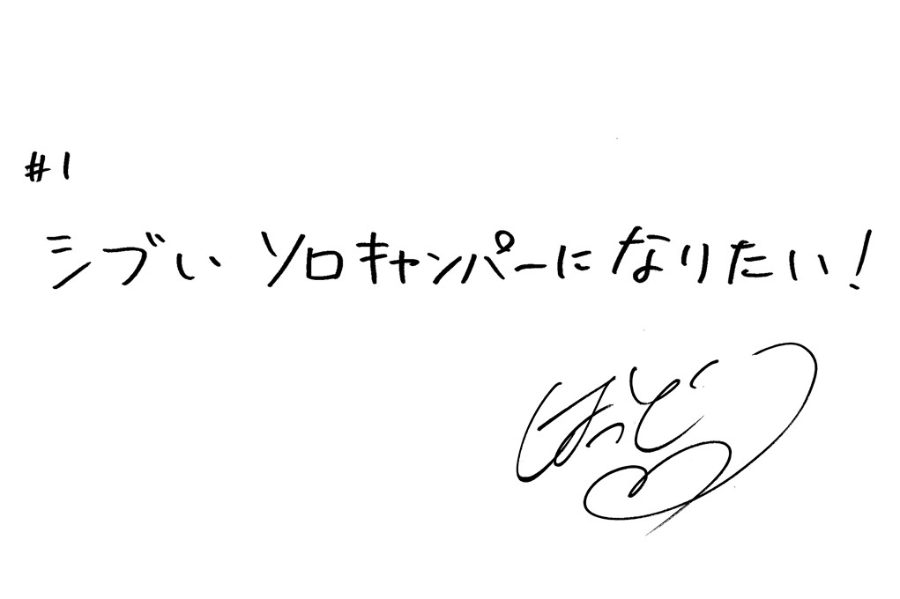 #1
シブい ソロキャンパーになりたい!
はっとり